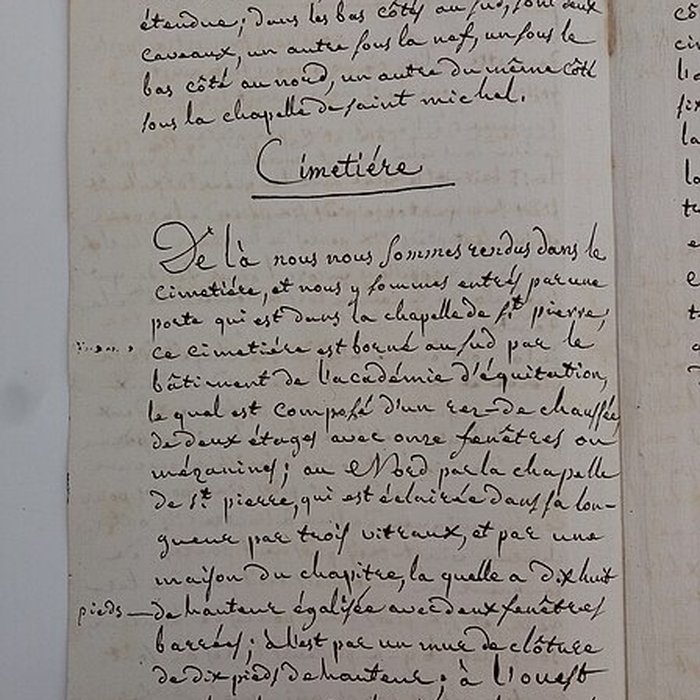 étendue; dans les bas côtés au sud, sont deux
caveaux, un autre sous la nef, un sous le
bas côté au nord, un autre du même côté
sous la chapelle de saint michel.
Cimetiére
De là nous nous sommes rendus dans le
cimetiére, et nous y sommes entrés par une
porte qui est dans la chapelle de St pierre,
ce cimetiére est borné au sud par le
bâtiment de l'académie d'équitation,
le quel est composé d'un rez-de chaussée
de deux étages avec onze fenêtres ou
mézanines; au Nord par la chapelle
de St pierre, qui est éclairée dans sa lon-
gueur par trois vitraux, et par une
maison du chapitre, la quelle a dix huit
pieds — de hauteur égalisée avec deux fenêtres
barrées; à l'est par un mur de clôture
de dix pieds de hauteur; à l'ouest